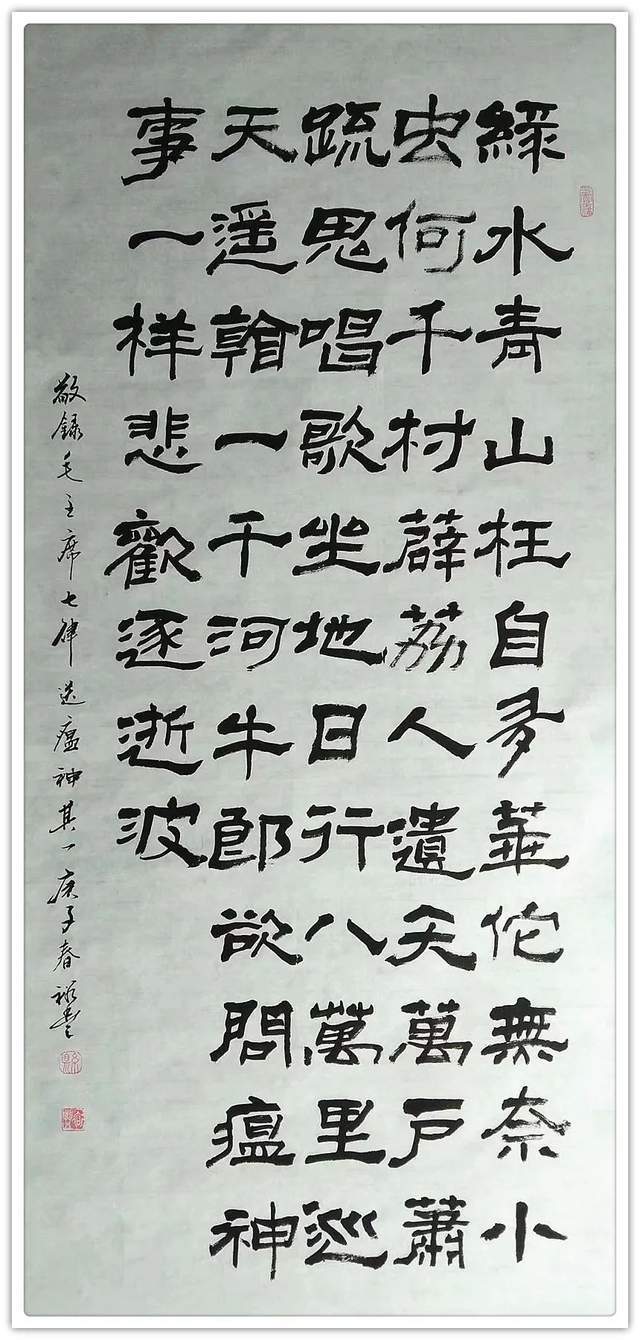 綠水青山枉自多華佗無奈小
虫何千村薜荔人遺矢萬戶蕭
疏鬼唱歌坐地日行八萬里巡
天遥看一千河牛郎欲問瘟神
事一樣悲歡逐逝波
敬錄毛主席七律送瘟神其一庚子春